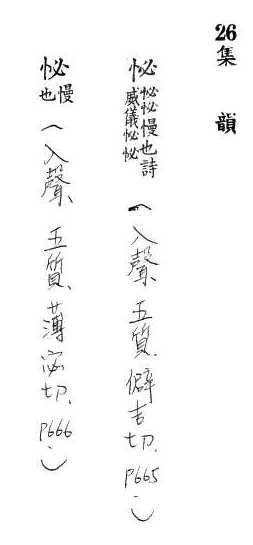 26集韻
怭怭怭慢也詩威儀怭怭(入聲、五質、僻吉切、P665.)
怭慢也(入聲、五質、薄宓切、P666.)